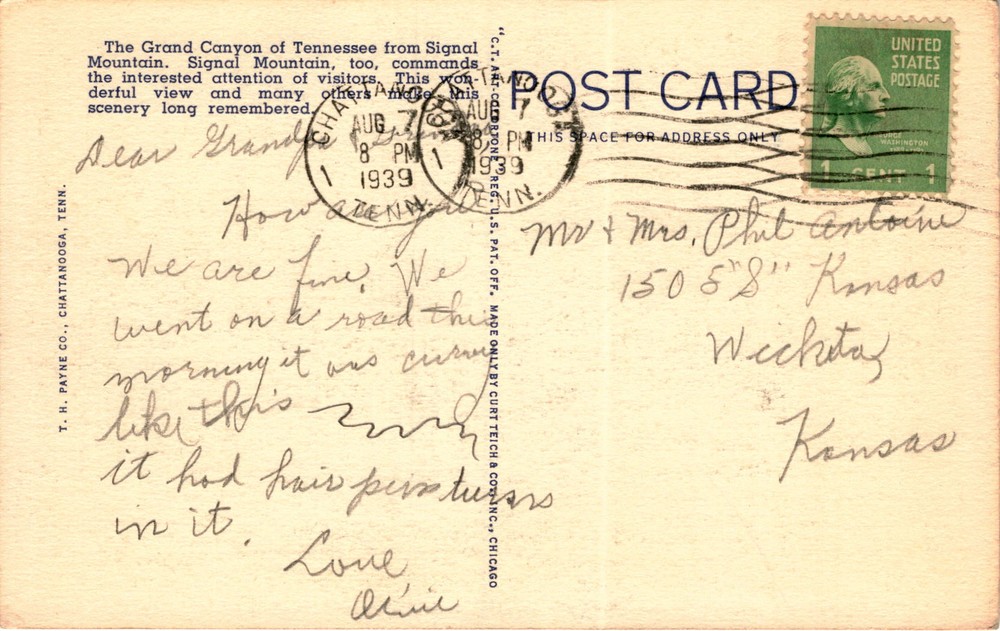 The Grand Canyon of Tennessee from Signal
Mountain. Signal Mountain, too, commands
the interested attention of visitors. This won-
derful view and many others make this
scenery long remembered.
Dear
How are you
We are fine. We
went on a road this
morning it was curvy
like this
it had hair pin turns
in it.
Love
T. H. PAYNE CO., CHATTANOOGA, TENN.
"C.T. ART-COLORTONE" REG. U.S. PAT. OFF. MADE ONLY BY CURT TEICH & CO., INC., CHICAGO
CHATTANOOGA
AUG 7
8 PM
1939
TENN.
1
CHATTANOOGA
AUG 7
8 PM
1939
TENN.
1
POST CARD
THIS SPACE FOR ADDRESS ONLY
UNITED
STATES
POSTAGE
WASHINGTON
1 CENT 1
Mr & Mrs. Phil Antoine
1505 "S" Kansas
Wichita
Kansas